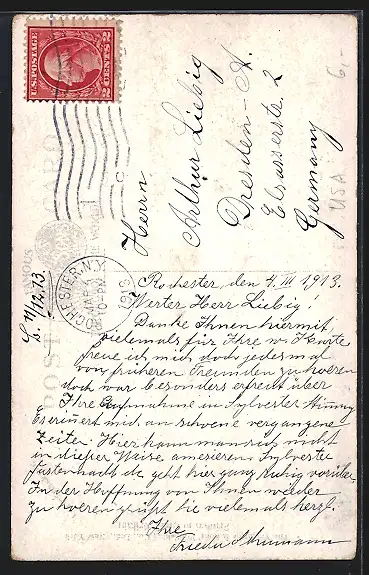 U.S. POSTAGE
2 CENTS 2
Herrn
Arthur Liebig
Dresden-A.
Elsasserstr 2
Germany
USA
6,-
ROCHESTER, N.Y.
MAR
10-PM
1913
L. 11/12.13.
POST CARD
Rochester, den 4. III 1913.
Werter Herr Liebig!
Danke Ihnen hiermit
vielemals für Ihre w. Karte
freue ich mich doch jedesmal
von früheren Freunden zu hoeren
doch war besonders erfreut über
Ihre Aufnahme in Sylvester
Es erinert mich an schoene vergangene
Zeiten. Hier kann man sich nicht
in dieser Weise amesieren. Sylvester
Fastennacht etc geht hier ganz ruhig vorüber
In der Hoffnung von Ihnen wieder
zu hoeren grüsst Sie vielemals herzl.
Ihre
Frieda Schumann